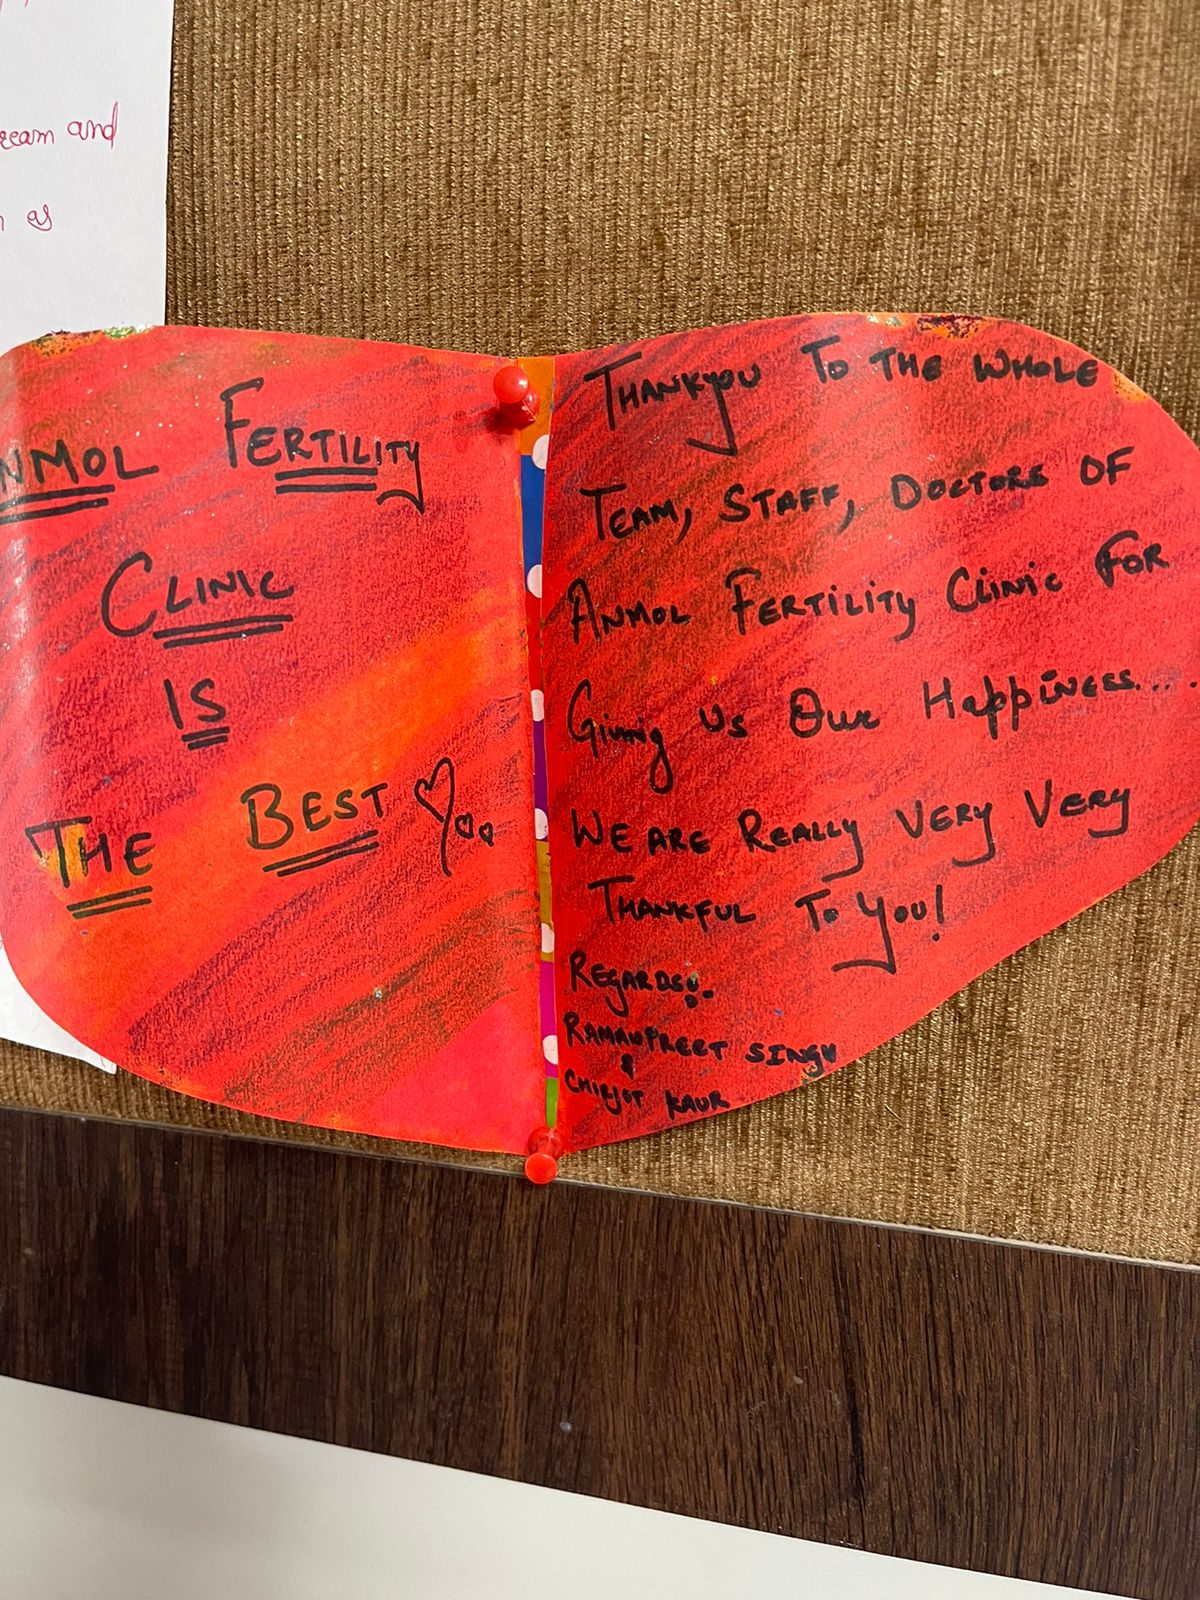 ream and
as
ANMOL FERTILITY
CLINIC
IS
THE BEST
THANKYOU TO THE WHOLE
TEAM, STAFF, DOCTORS OF
ANMOL FERTILITY CLINIC FOR
Giving us Our Happiness....
WE ARE REALLY VERY VERY
THANKFUL TO YOU!
REGARDS:-
RAMANPREET SINGH
&
CHIRJOT KAUR